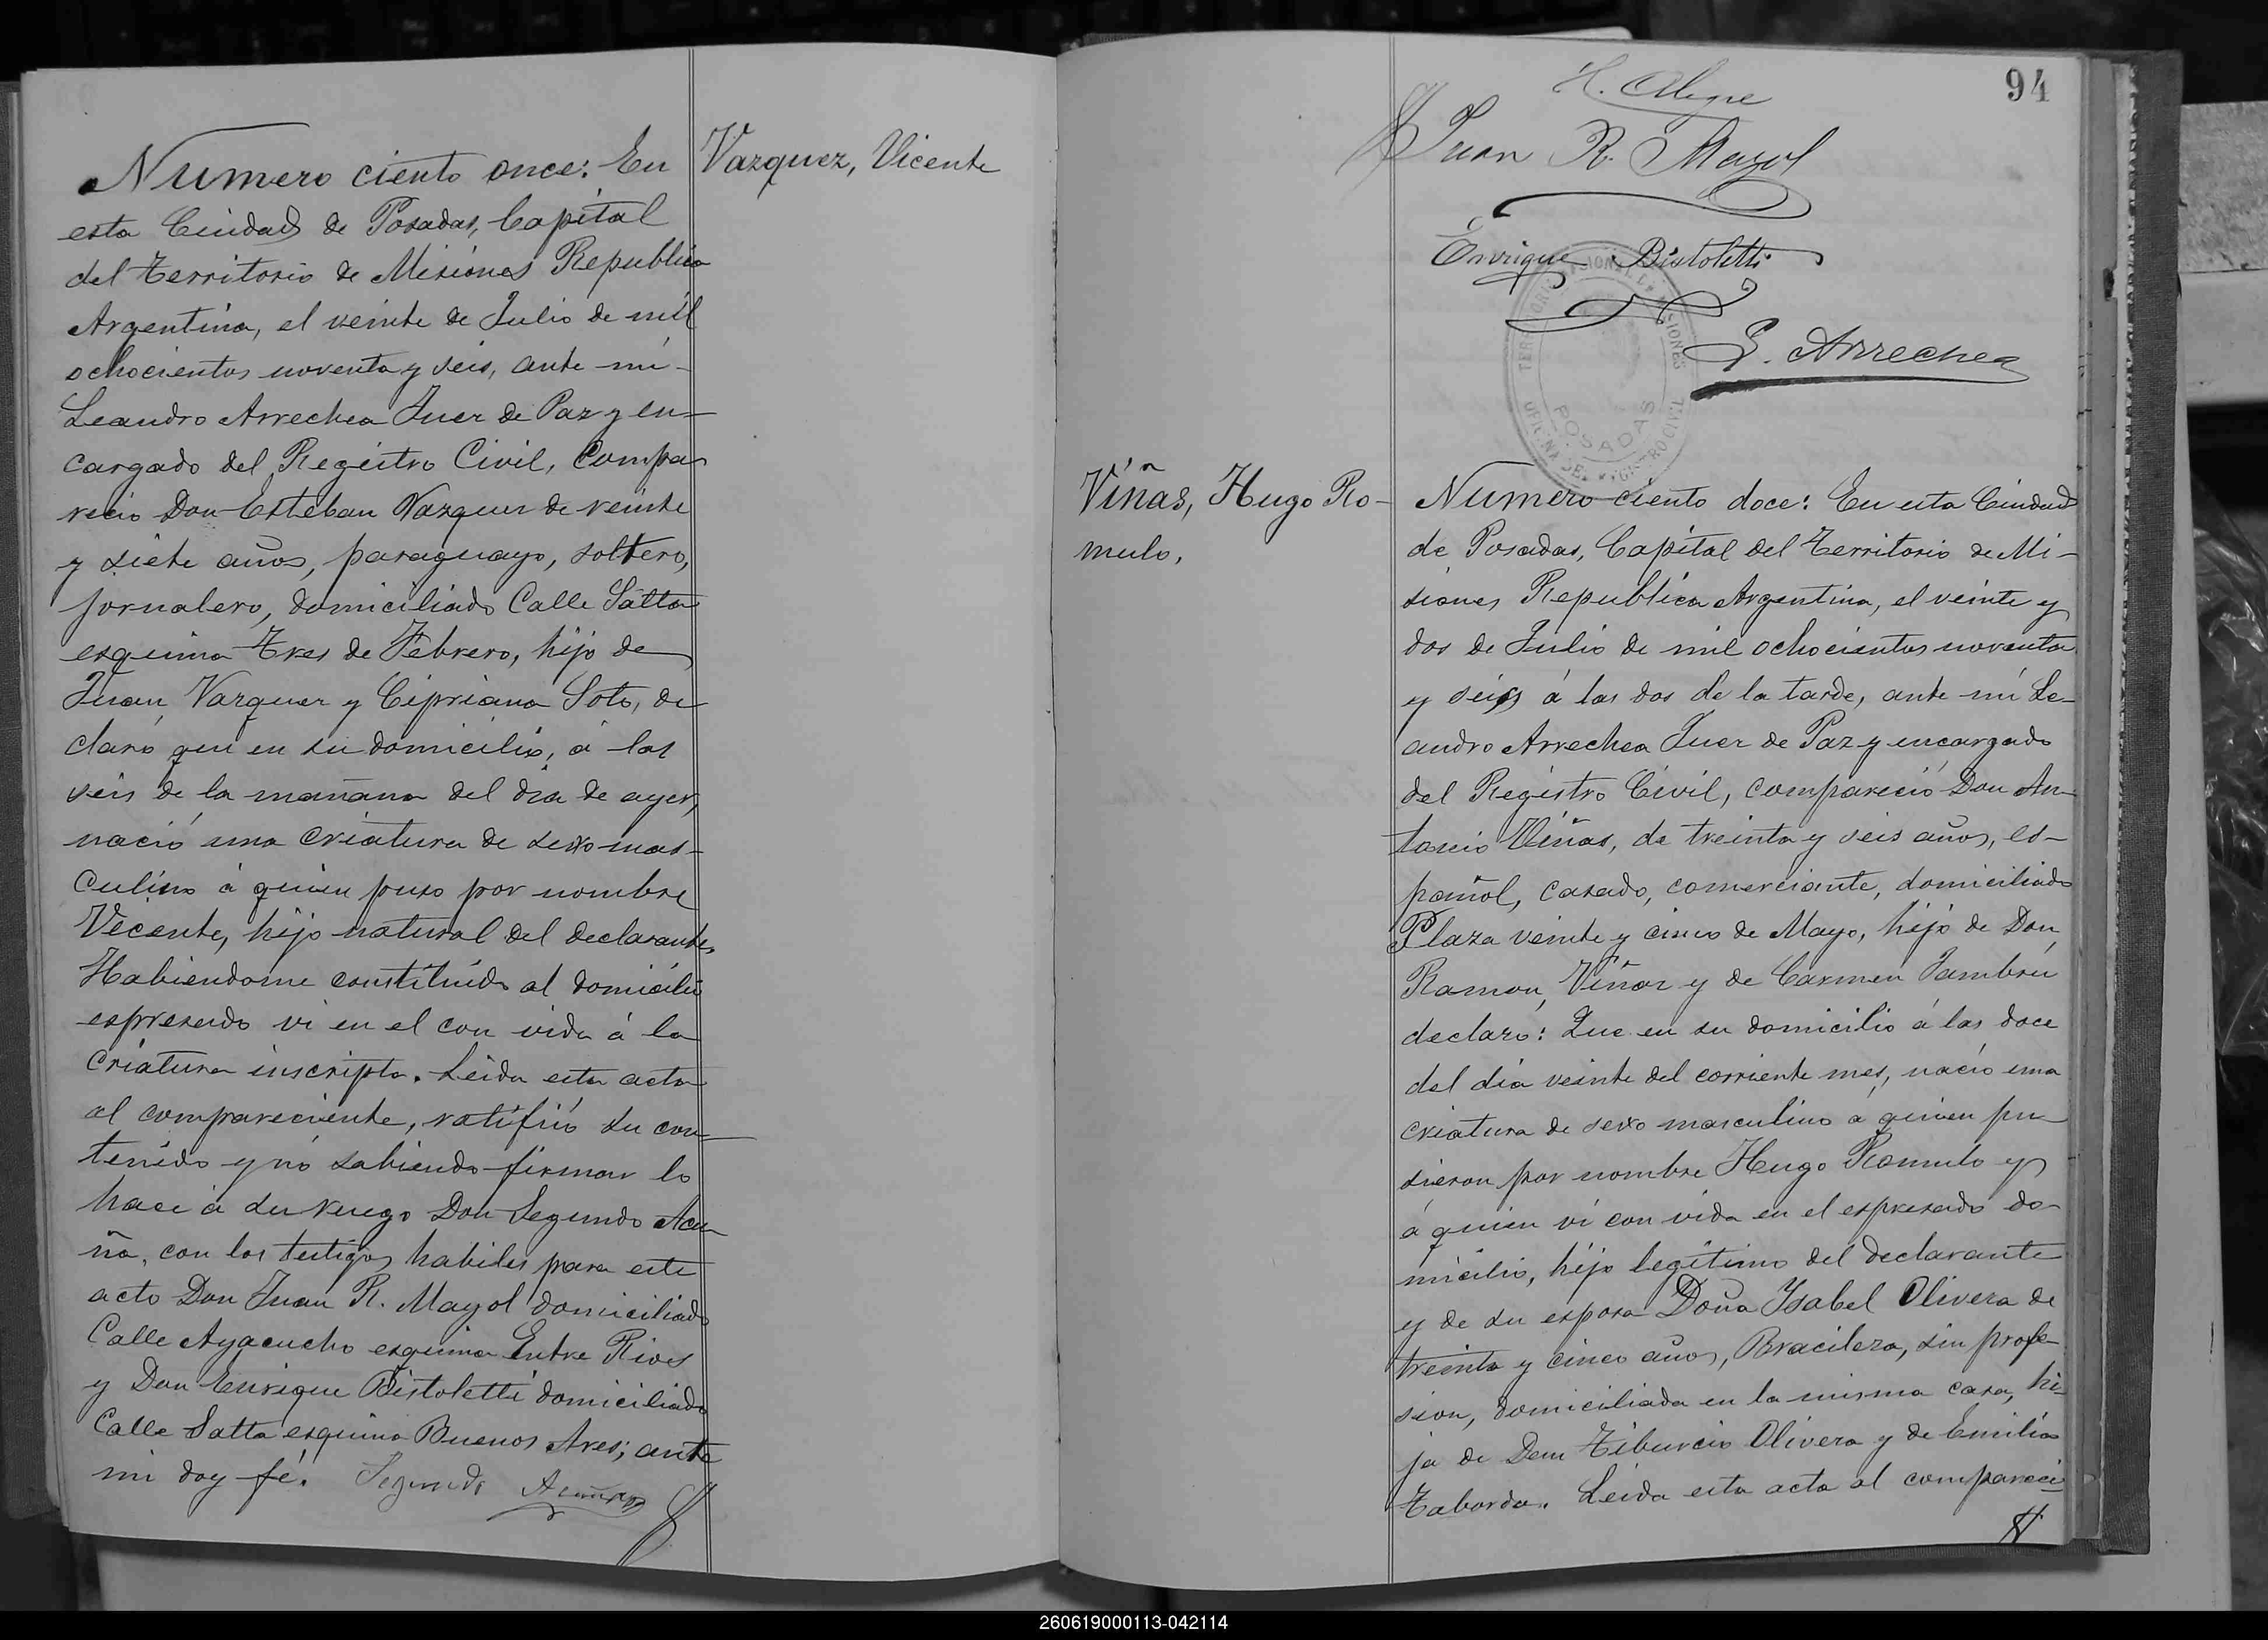 Numero ciento once: En
esta Ciudad de Posadas, Capital
del Territorio de Misiones Republica
Argentina, el veinte de Julio de mil
ochocientos noventa y seis, ante mi
Leandro Arrechea Juez de Paz y en-
cargado del Registro Civil, Compa-
reció Don Esteban Vazquez de veinte
y siete años, paraguayo, soltero,
jornalero, domiciliado Calle Salta
esquina Tres de Febrero, hijo de
Juan Vazquez y Cipriana Soto, de
claró que en su domicilio, á las
seis de la mañana del dia de ayer,
nació una criatura de sexo mas-
culino á quien puso por nombre
Vicente, hijo natural del declarante.
Habiendome constituido al domicilio
espresado vi en el con vida á la
criatura inscripta. Leida esta acta
al compareciente, ratificó su con-
tenido y nó sabiendo firmar lo
hace á su ruego Don Segundo Acu-
ña, con los testigos habiles para este
acto Don Juan R. Mayol domiciliado
Calle Ayacucho esquina Entre Rios
y Don Enrique Bistoletti domiciliado
Calle Salta esquina Buenos Ares; ante
mi doy fé. Segundo Acuña
Vazquez, Vicente
94
H. Alegre
Juan R. Mayol
Enrique Bistoletti
L. Arrechea
POSADAS
Viñas, Hugo Ro-
mulo,
Numero ciento doce: En esta Ciudad
de Posadas, Capital del Territorio de Mi-
siones Republica Argentina, el veinte y
dos de Julio de mil ochocientos noventa
y seis á las dos de la tarde, ante mi Le-
andro Arrechea Juez de Paz y encargado
del Registro Civil, compareció Don An-
tonio Viñas, de treinta y seis años, es-
pañol, casado, comerciante, domiciliado
Plaza veinte y cinco de Mayo, hijo de Don
Ramon Viñas y de Carmen
declaró: Que en su domicilio á las doce
del dia veinte del corriente mes, nació una
criatura de sexo masculino á quien pu
sieron por nombre Hugo Romulo y
á quien ví con vida en el espresado do-
micilio, hijo legitimo del declarante
y de su esposa Doña Ysabel Olivera de
treinta y cinco años, Bracilera, sin profe-
sion, domiciliada en la misma casa, hi-
ja de Don Tiburcio Olivera y de Emilia
Taborda. Leida esta acta al compareci
260619000113-042114